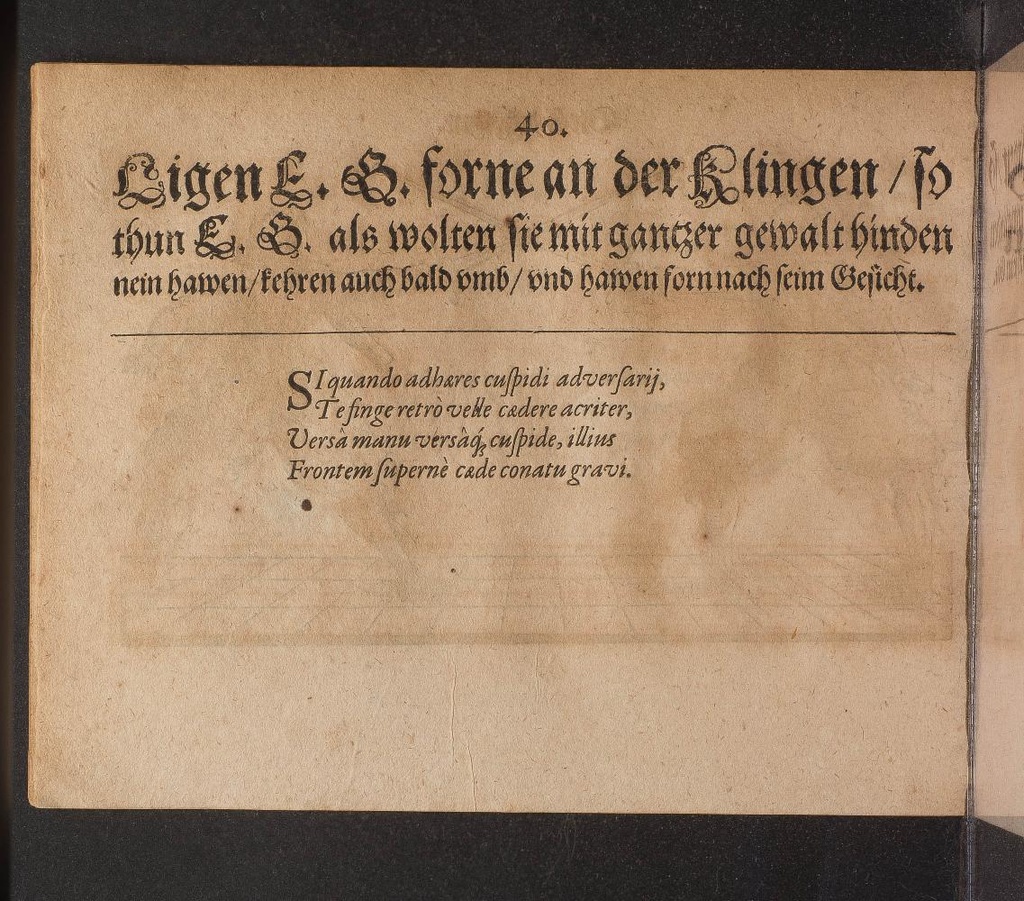 40.
Ligen E. G. forne an der Klingen / so
thun E. G. als wolten sie mit gantzer gewalt hinden
nein hawen/kehren auch bald vmb/ vnd hawen forn nach seim Gesicht.
SI quando adhæres cuſpidi adverſarij,
Te finge retrò velle cædere acriter,
Versâ manu versâq́ꝫ cuſpide, illius
Frontem ſupernè cæde conatu gravi.